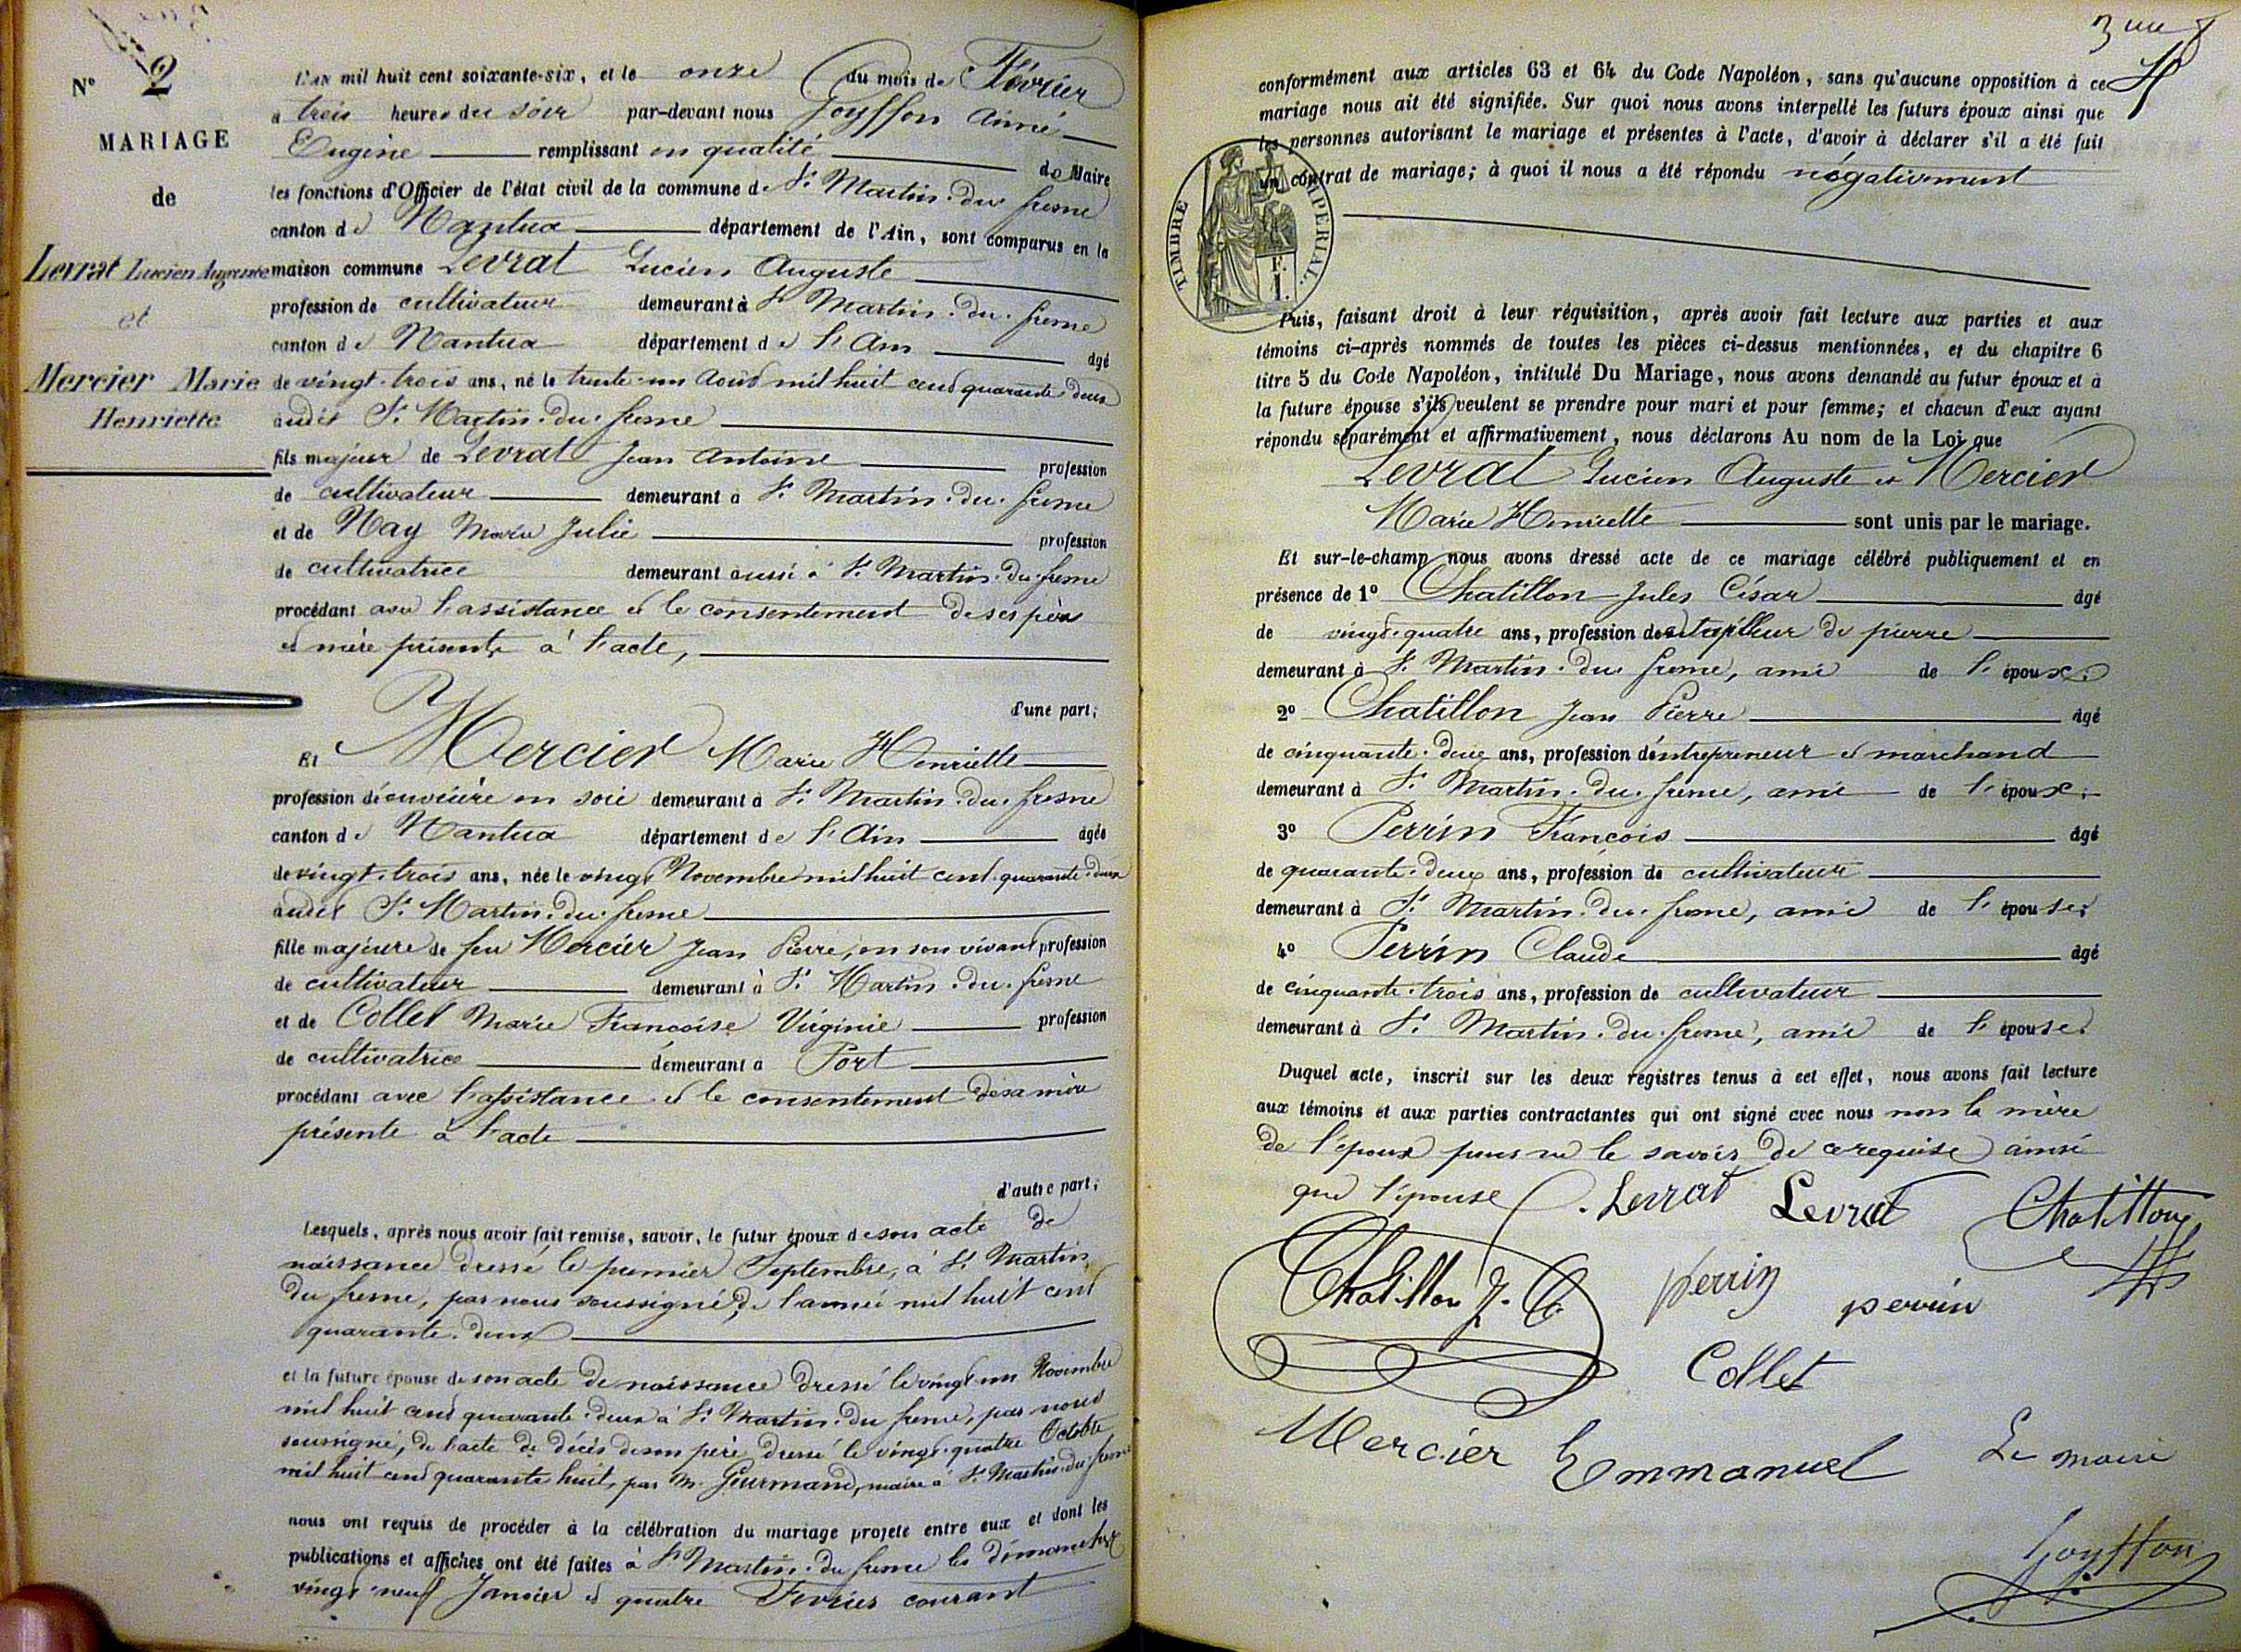 N° 2
MARIAGE
de
Levrat Lucien Auguste
et
Mercier Marie
Henriette
L'an mil huit cent soixante-six, et le onze du mois de Février
à trois heures du soir par-devant nous Goyffon Aimé
Eugène remplissant en qualité de Maire
les fonctions d'Officier de l'état civil de la commune de St Martin-du-fresne
canton de Nantua département de l'Ain, sont comparus en la
maison commune Levrat Lucien Auguste
profession de cultivateur demeurant à St Martin-du-fresne
canton de Nantua département de l'Ain âgé
de vingt-trois ans, né le trente-un Août mil huit cent quarante-deux
audit St Martin-du-fresne
fils majeur de Levrat Jean Antoine profession
de cultivateur demeurant à St Martin-du-fresne
et de Nay Marie Julie profession
de cultivatrice demeurant aussi à St Martin-du-fresne
procédant avec l'assistance et le consentement de ses père
et mère présents à l'acte,
d'une part;
Et Mercier Marie Henriette
profession d'ouvrière en soie demeurant à St Martin-du-fresne
canton de Nantua département de l'Ain âgée
de vingt-trois ans, née le vingt Novembre mil huit cent quarante-deux
audit St Martin-du-fresne
fille majeure de feu Mercier Jean Pierre, en son vivant profession
de cultivateur demeurant à St Martin-du-fresne
et de Collet Marie Françoise Virginie profession
de cultivatrice demeurant à Port
procédant avec l'assistance et le consentement de sa mère
présente à l'acte
d'autre part;
Lesquels, après nous avoir fait remise, savoir, le futur époux de son acte de
naissance dressé le premier Septembre, à St Martin
du fresne, par nous soussigné, de l'année mil huit cent
quarante-deux
et la future épouse de son acte de naissance dressé le vingt-un Novembre
mil huit cent quarante-deux à St Martin-du-fresne, par nous
soussigné, de l'acte de décès de son père dressé le vingt-quatre Octobre
mil huit cent quarante-huit, par M. maire à St Martin-du-fresne
nous ont requis de procéder à la célébration du mariage projeté entre eux et dont les
publications et affiches ont été faites à St Martin-du-fresne les dimanches
vingt-neuf Janvier et quatre Février courant
conformément aux articles 63 et 64 du Code Napoléon, sans qu'aucune opposition à ce
mariage nous ait été signifiée. Sur quoi nous avons interpellé les futurs époux ainsi que
les personnes autorisant le mariage et présentes à l'acte, d'avoir à déclarer s'il a été fait
un contrat de mariage; à quoi il nous a été répondu négativement
TIMBRE IMPERIAL.
F.
1.
Puis, faisant droit à leur réquisition, après avoir fait lecture aux parties et aux
témoins ci-après nommés de toutes les pièces ci-dessus mentionnées, et du chapitre 6
titre 5 du Code Napoléon, intitulé Du Mariage, nous avons demandé au futur époux et à
la future épouse s'ils veulent se prendre pour mari et pour femme; et chacun d'eux ayant
répondu séparément et affirmativement, nous déclarons Au nom de la Loi que
Levrat Lucien Auguste et Mercier
Marie Henriette sont unis par le mariage.
Et sur-le-champ nous avons dressé acte de ce mariage célébré publiquement et en
présence de 1° Chatillon Jules César âgé
de vingt-quatre ans, profession de tailleur de pierre
demeurant à St Martin-du-fresne, ami de l'époux;
2° Chatillon Jean Pierre âgé
de cinquante-deux ans, profession d'entrepreneur et marchand
demeurant à St Martin-du-fresne, ami de l'époux;
3° Perrin François âgé
de quarante-deux ans, profession de cultivateur
demeurant à St Martin-du-fresne, ami de l'épouse;
4° Perrin Claude âgé
de cinquante-trois ans, profession de cultivateur
demeurant à St Martin-du-fresne, ami de l'épouse.
Duquel acte, inscrit sur les deux registres tenus à cet effet, nous avons fait lecture
aux témoins et aux parties contractantes qui ont signé avec nous non la mère
de l'époux pour ne le savoir de ce requise ainsi
que l'épouse Levrat Levrat Chatillon
Chatillon J. C. perrin perrin
Collet
Mercier Emmanuel Le maire
Goyffon